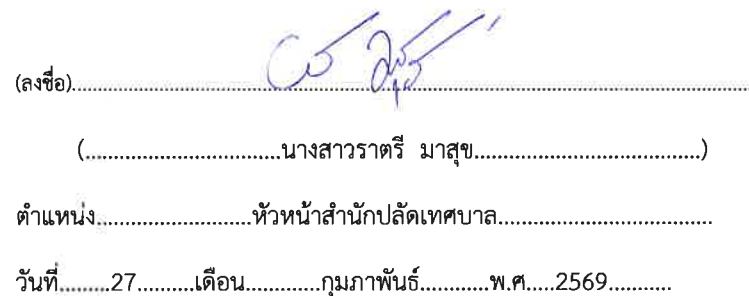 (ลงชื่อ)........................................................................................................
(................................นางสาวราตรี มาสุข.....................................)
ตำแหน่ง.........................หัวหน้าสำนักปลัดเทศบาล...................................
วันที่.........27..........เดือน............กุมภาพันธ์...........พ.ศ.....2569..........